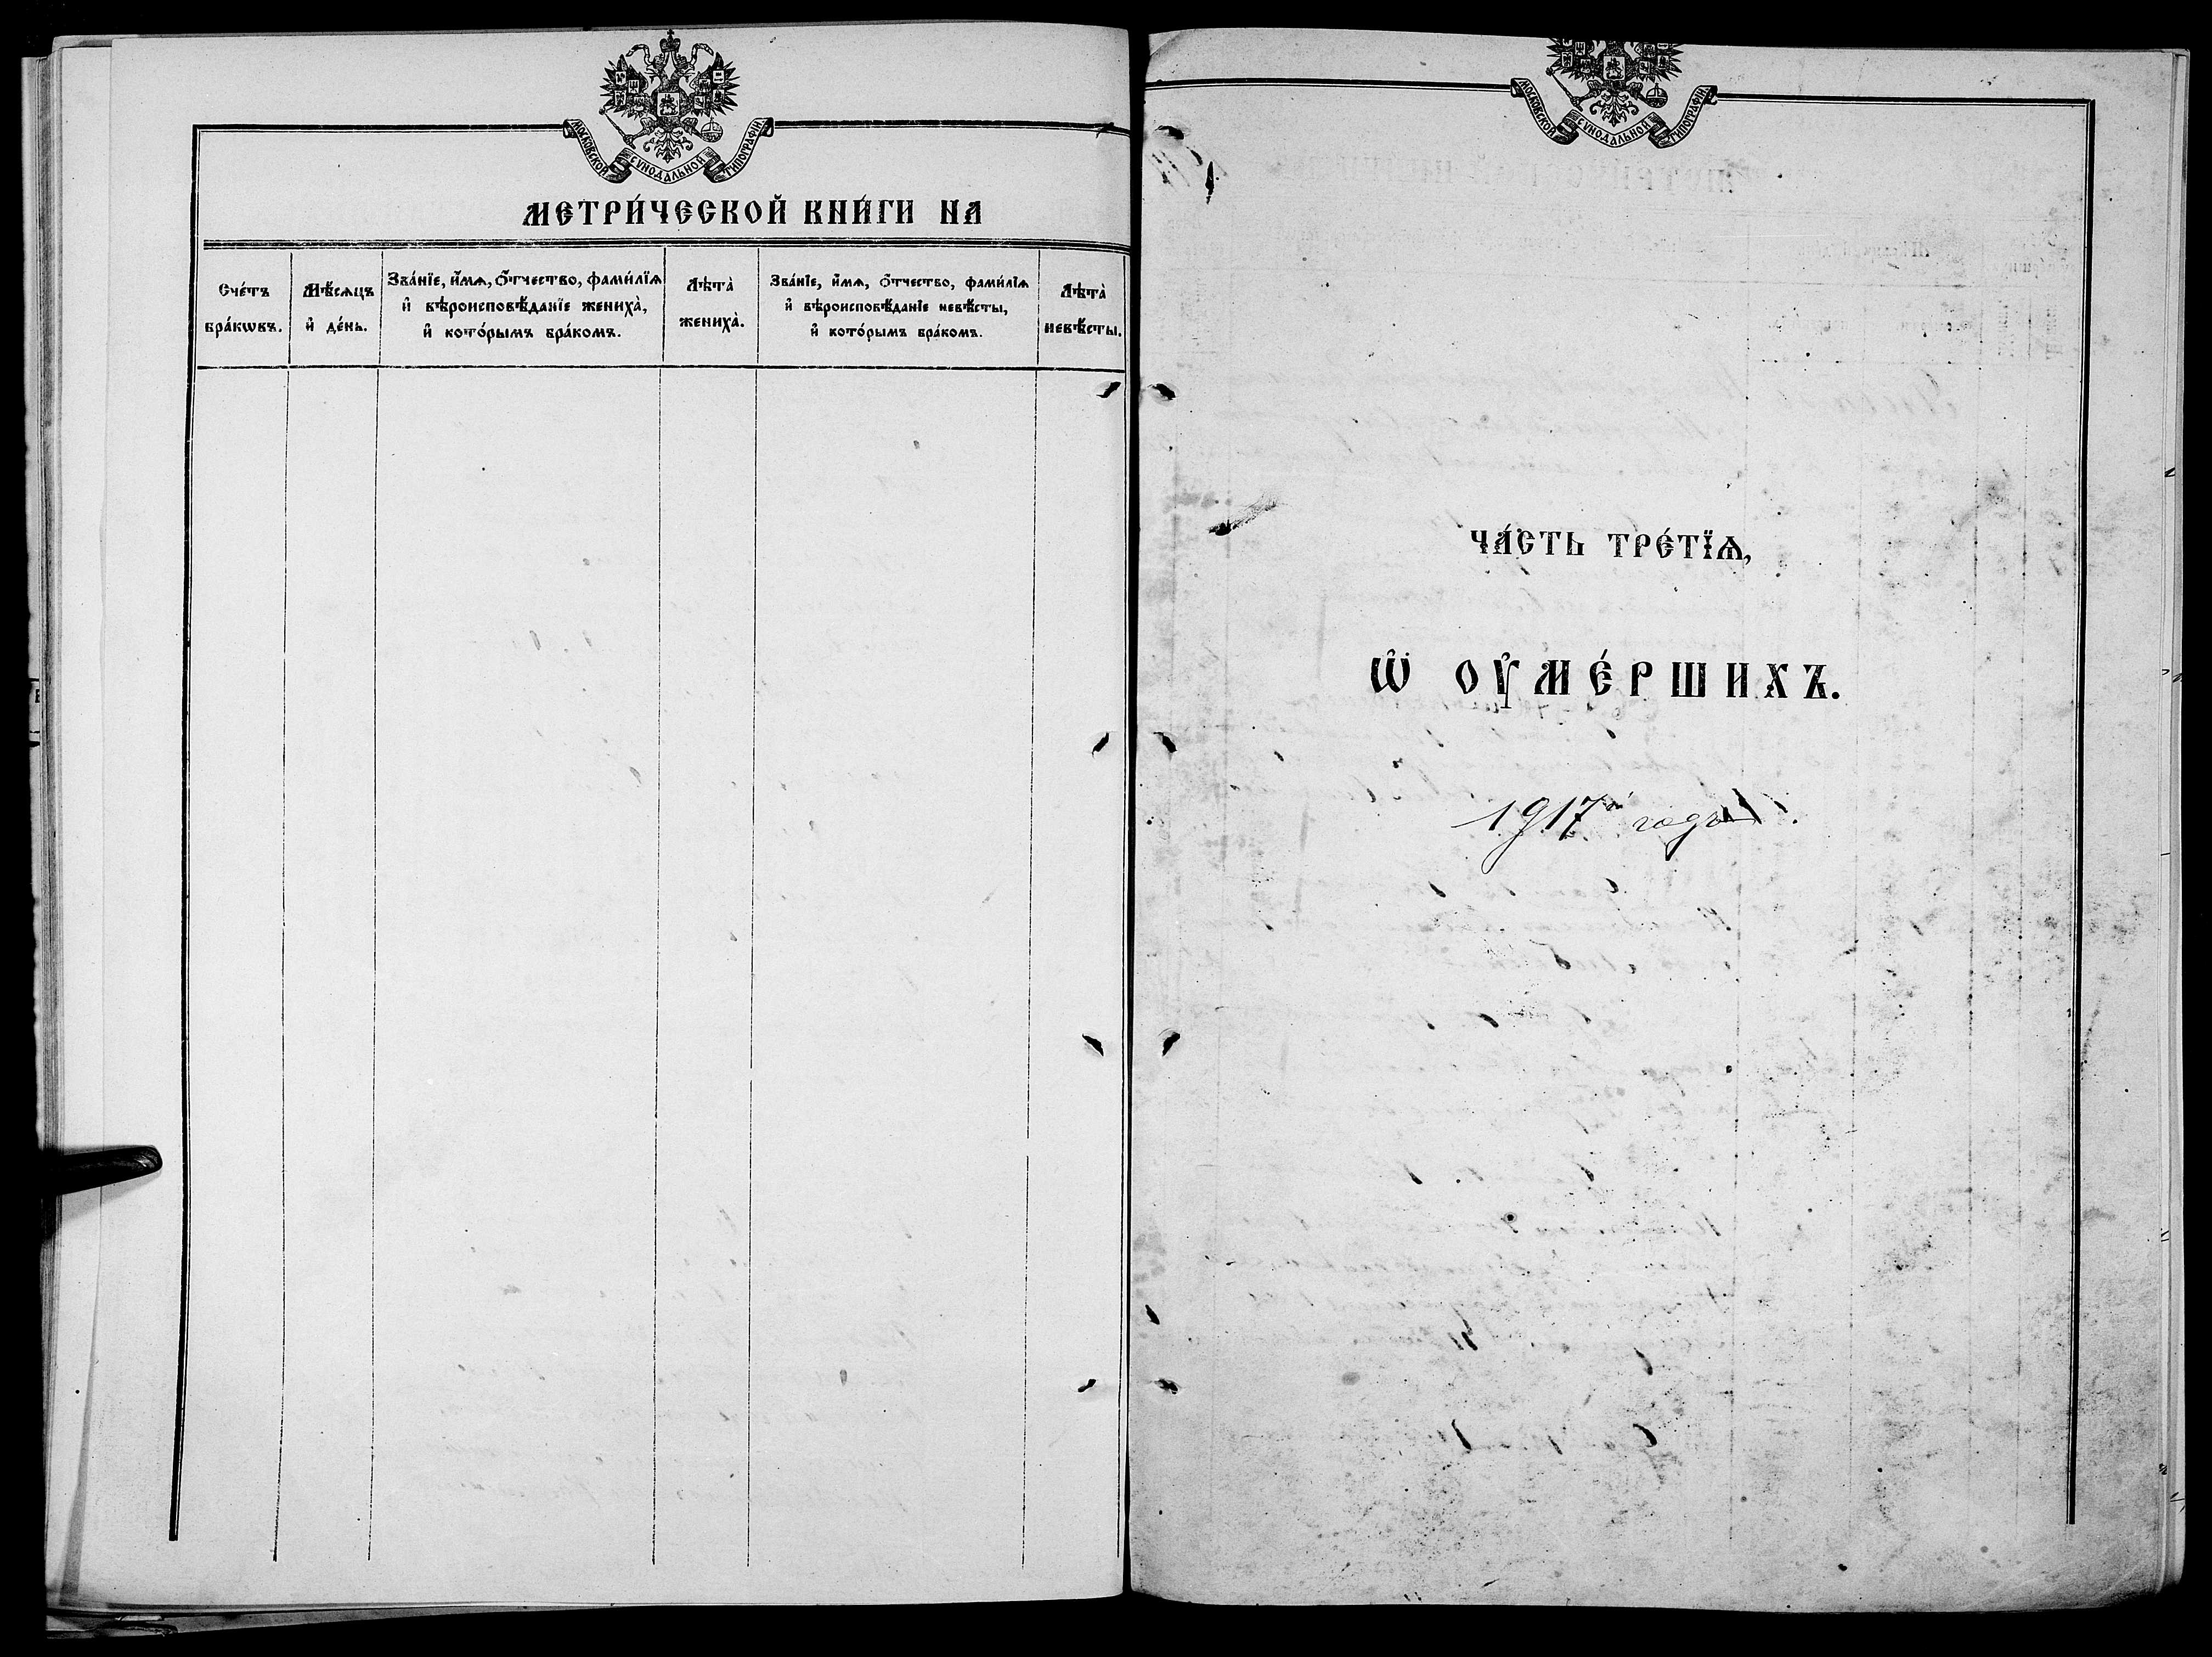 МОСКОВСКОЙ СѴНОДАЛЬНОЙ ТИПОГРАФІИ.
МЕТРИ́ЧЕСКОЙ КНИ́ГИ НА
Сче́тъ бра́кѡвъ.
Мѣ́сѧцъ и҆ де́нь.
Зва́нїе, и҆́мѧ, ѻ҆́тчество, фами́лїѧ
и҆ вѣроисповѣ́данїе жениха̀,
и҆ кото́рымъ бра́комъ.
Лѣта̀ жениха̀.
Зва́нїе, и҆́мѧ, ѻ҆́тчество, фами́лїѧ
и҆ вѣроисповѣ́данїе невѣ́сты,
и҆ кото́рымъ бра́комъ.
Лѣта̀ невѣ́сты.
МОСКОВСКОЙ СѴНОДАЛЬНОЙ ТИПОГРАФІИ.
ЧА́СТЬ ТРЕ́ТЇѦ,
Ѡ҆ ОУ҆МЕ́РШИХЪ.
1917й годъ.